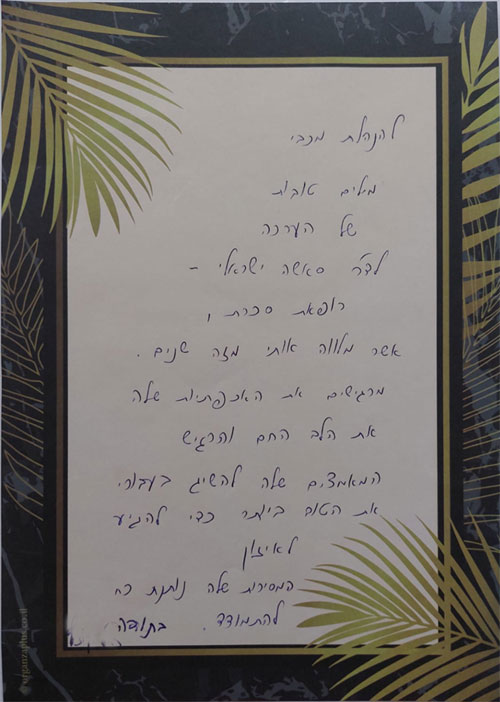 להנהלת מכבי
מילים טובות
של הערכה
לדר' סאשה ישראלי -
רופאת סכרת,
אשר מלווה אותי מזה שנים.
מרגישים את האכפתיות שלה
את הלב החם והרגיש
המאמצים שלה להשיג בעבורי
את הטוב ביותר כדי להגיע
לאיזון
המסירות שלה נותנת כח
להתמודד. בתודה
organzaplus.co.il